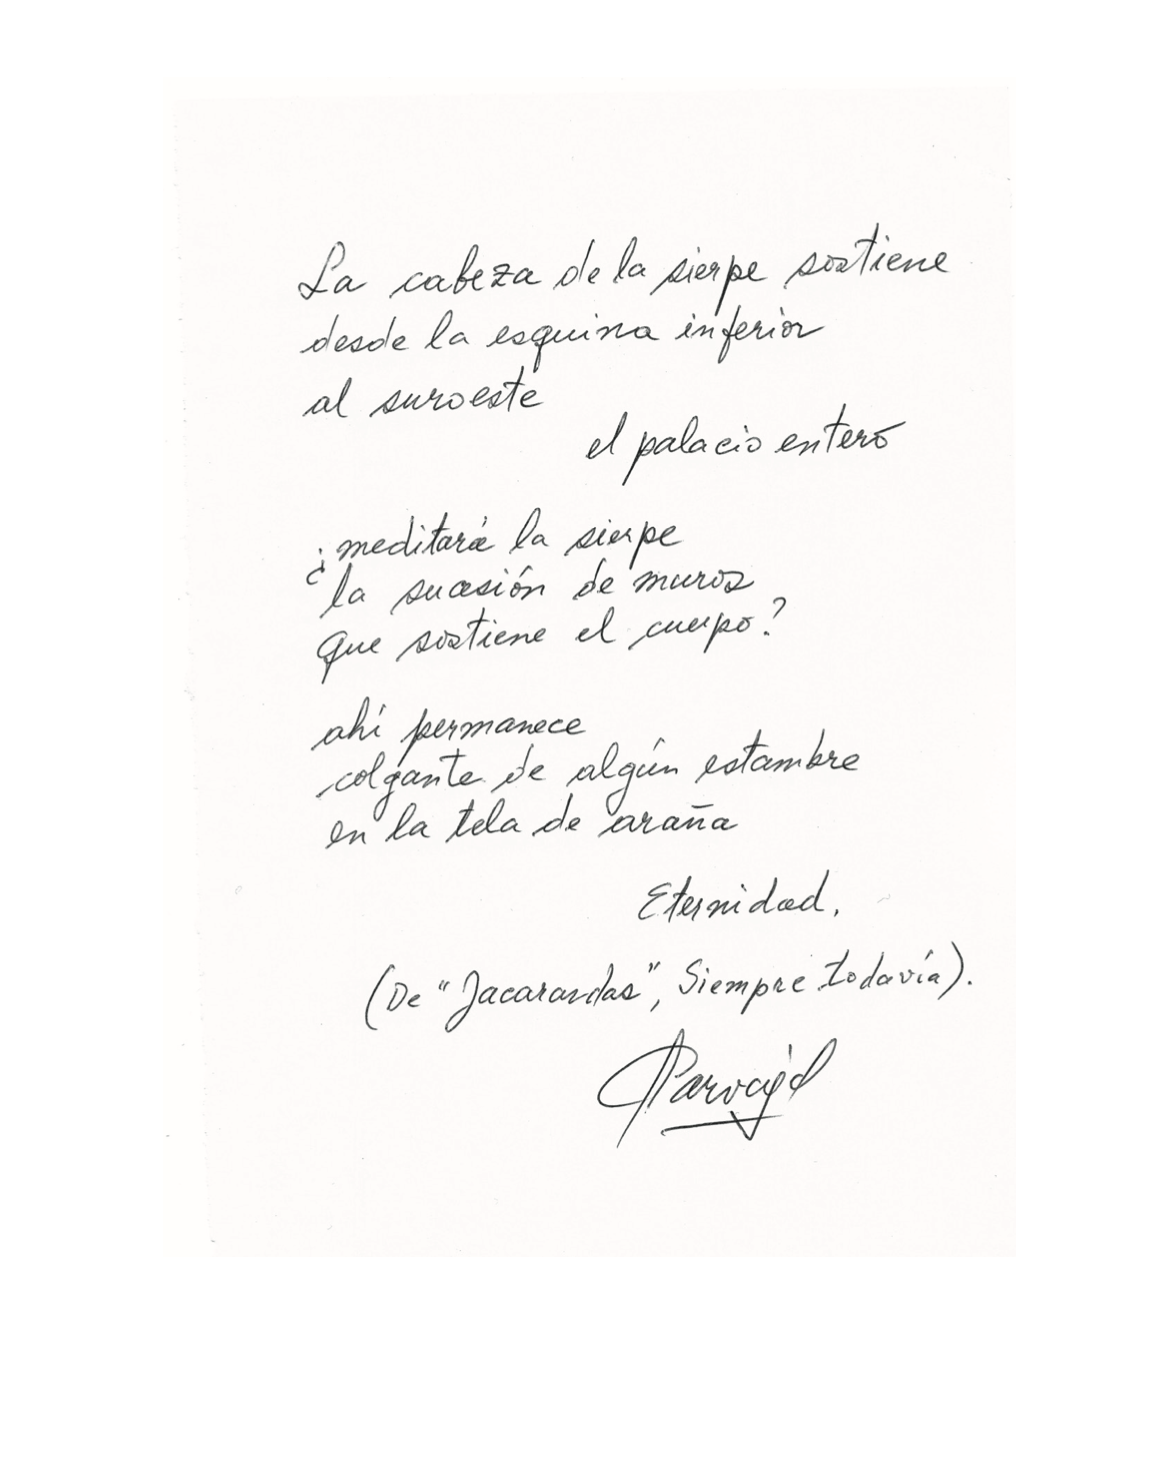 La cabeza de la sierpe sostiene
desde la esquina inferior
al suroeste
el palacio entero
¿meditará la sierpe
la sucesión de muros
que sostiene el cuerpo?
ahí permanece
colgante de algún estambre
en la tela de araña
Eternidad.
(De "Jacarandas", Siempre todavía).